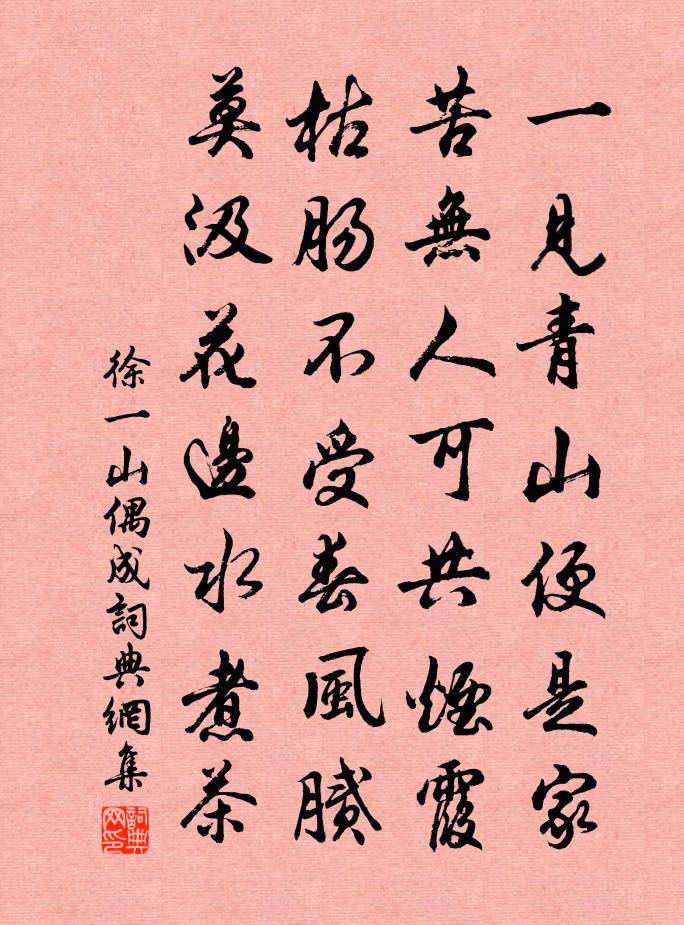 一見青山便是家
苦無人可共煙霞
枯腸不受春風膩
莫汲花邊水煮茶
徐一山偶成詞典網集
詞典网印